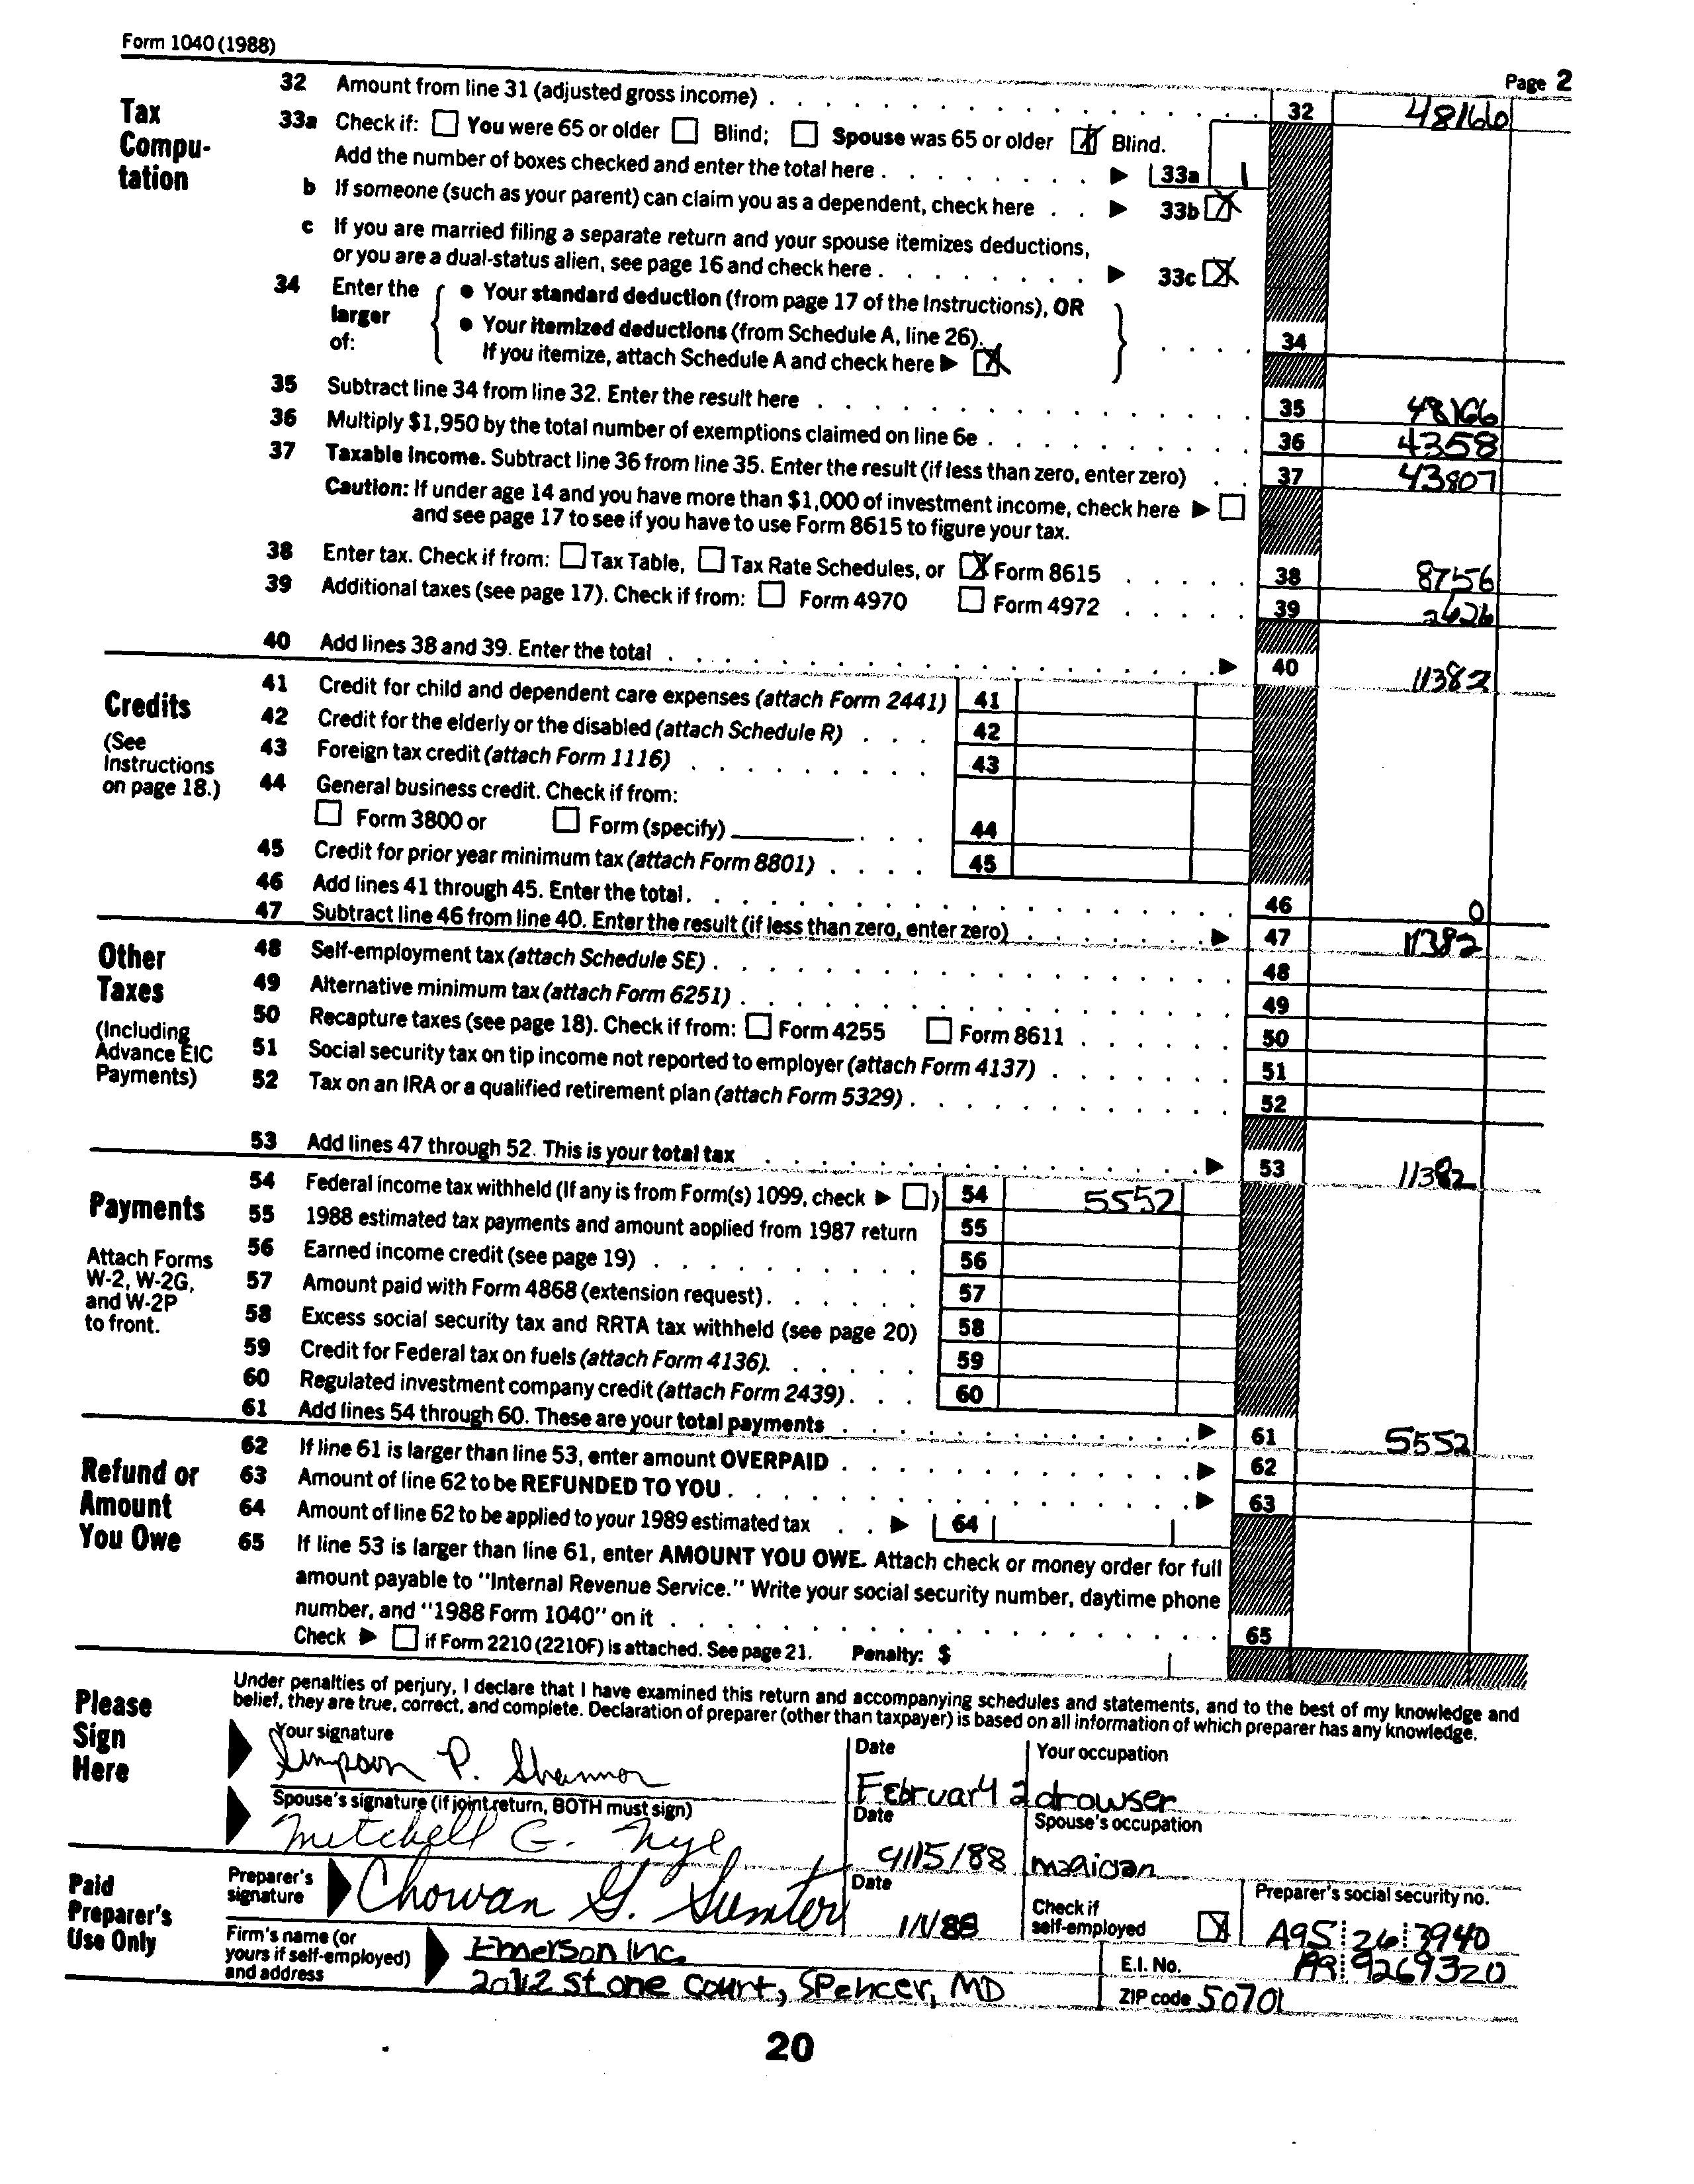 Form 1040 (1988)
Page 2
Tax Compu- tation
32 Amount from line 31 (adjusted gross income) 32 48166
33a Check if: You were 65 or older Blind; Spouse was 65 or older Blind.
Add the number of boxes checked and enter the total here 33a 1
b If someone (such as your parent) can claim you as a dependent, check here 33b
c If you are married filing a separate return and your spouse itemizes deductions,
or you are a dual-status alien, see page 16 and check here 33c
34 Enter the larger of:
• Your standard deduction (from page 17 of the Instructions), OR
• Your itemized deductions (from Schedule A, line 26).
If you itemize, attach Schedule A and check here
34
35 Subtract line 34 from line 32. Enter the result here 35 48166
36 Multiply $1,950 by the total number of exemptions claimed on line 6e 36 4358
37 Taxable income. Subtract line 36 from line 35. Enter the result (if less than zero, enter zero) 37 43807
Caution: If under age 14 and you have more than $1,000 of investment income, check here
and see page 17 to see if you have to use Form 8615 to figure your tax.
38 Enter tax. Check if from: Tax Table, Tax Rate Schedules, or Form 8615 38 8756
39 Additional taxes (see page 17). Check if from: Form 4970 Form 4972 39 2626
40 Add lines 38 and 39. Enter the total 40 11382
Credits
(See Instructions on page 18.)
41 Credit for child and dependent care expenses (attach Form 2441) 41
42 Credit for the elderly or the disabled (attach Schedule R) 42
43 Foreign tax credit (attach Form 1116) 43
44 General business credit. Check if from:
Form 3800 or Form (specify) 44
45 Credit for prior year minimum tax (attach Form 8801) 45
46 Add lines 41 through 45. Enter the total. 46 0
47 Subtract line 46 from line 40. Enter the result (if less than zero, enter zero) 47 11382
Other Taxes
(Including Advance EIC Payments)
48 Self-employment tax (attach Schedule SE) 48
49 Alternative minimum tax (attach Form 6251) 49
50 Recapture taxes (see page 18). Check if from: Form 4255 Form 8611 50
51 Social security tax on tip income not reported to employer (attach Form 4137) 51
52 Tax on an IRA or a qualified retirement plan (attach Form 5329) 52
53 Add lines 47 through 52. This is your total tax 53 11382
Payments
Attach Forms W-2, W-2G, and W-2P to front.
54 Federal income tax withheld (If any is from Form(s) 1099, check ) 54 5552
55 1988 estimated tax payments and amount applied from 1987 return 55
56 Earned income credit (see page 19) 56
57 Amount paid with Form 4868 (extension request) 57
58 Excess social security tax and RRTA tax withheld (see page 20) 58
59 Credit for Federal tax on fuels (attach Form 4136). 59
60 Regulated investment company credit (attach Form 2439) 60
61 Add lines 54 through 60. These are your total payments 61 5552
Refund or Amount You Owe
62 If line 61 is larger than line 53, enter amount OVERPAID 62
63 Amount of line 62 to be REFUNDED TO YOU 63
64 Amount of line 62 to be applied to your 1989 estimated tax 64
65 If line 53 is larger than line 61, enter AMOUNT YOU OWE. Attach check or money order for full
amount payable to "Internal Revenue Service." Write your social security number, daytime phone
number, and "1988 Form 1040" on it 65
Check if Form 2210 (2210F) is attached. See page 21. Penalty: $
Please Sign Here
Under penalties of perjury, I declare that I have examined this return and accompanying schedules and statements, and to the best of my knowledge and
belief, they are true, correct, and complete. Declaration of preparer (other than taxpayer) is based on all information of which preparer has any knowledge.
Your signature Date Your occupation
Simpson P. Shannon February 2 drowser
Spouse's signature (if joint return, BOTH must sign) Date Spouse's occupation
Mitchell G. Nye 9/15/88
Paid Preparer's Use Only
Preparer's signature Date Check if self-employed Preparer's social security no.
Chowan G. Sumter 1/1/88 A95 26 3940
Firm's name (or yours if self-employed) and address
Emerson Inc. E.I. No. A9 9269320
2012 Stone Court, Spencer, MD ZIP code 50701
20